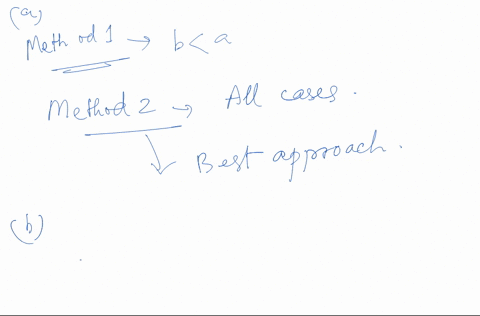 (a)
Method 1 → b < a
Method 2 → All cases.
Best approach.
(b)